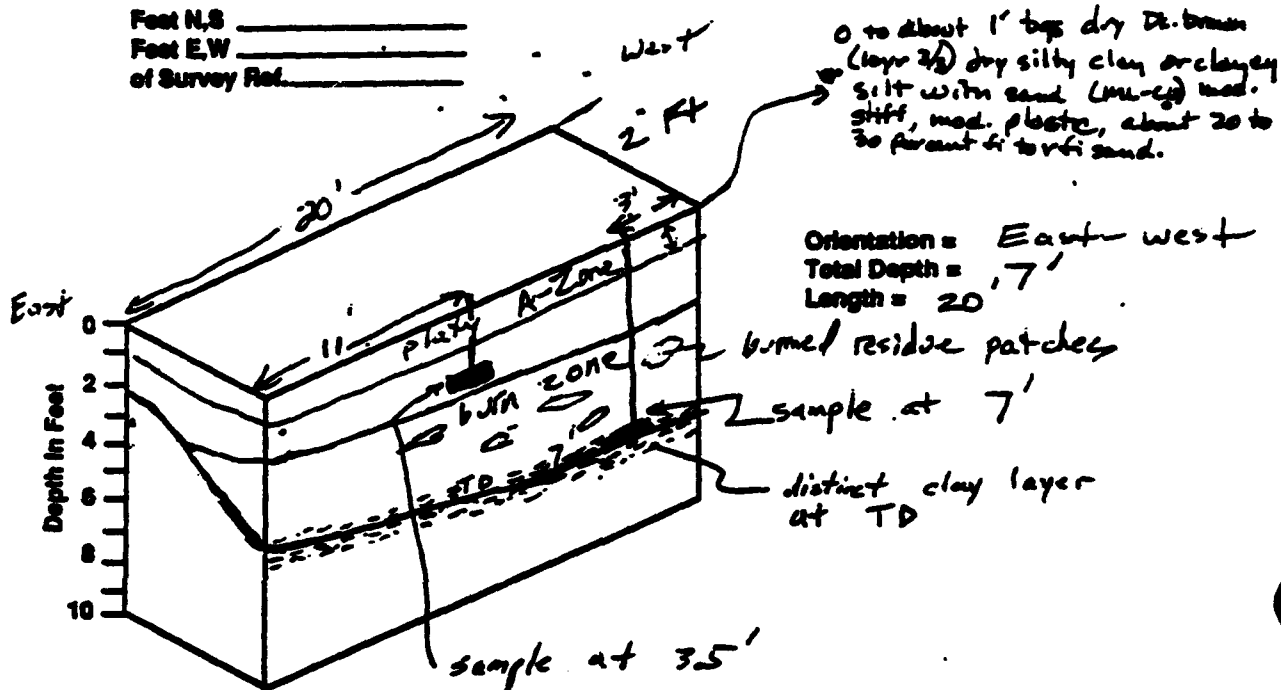 Feet N,S
Feet E,W
of Survey Ref.
West
2 Ft
0 to about 1' bgs dry Dk. brown
(10yr 3/3) dry silty clay or clayey
silt with sand (ML-CL) mod.
stiff, mod. plastic, about 20 to
30 percent fi to vfi sand.
20'
3'
Orientation = East-west
Total Depth = 7'
Length = 20'
East
A-Zone
platy
11
burn zone
burned residue patches
sample at 7'
TD 7'
distinct clay layer
at TD
sample at 3.5'
Depth in Feet
0
2
4
6
8
10